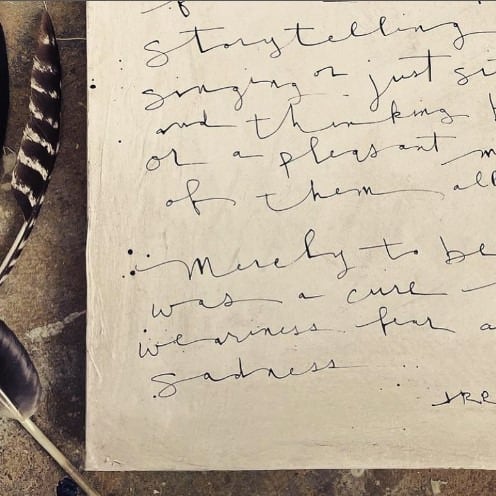 storytelling
singing or just si
and thinking b
or a pleasant m
of them all
Merely to be
was a cure
weariness fear a
sadness
JRR